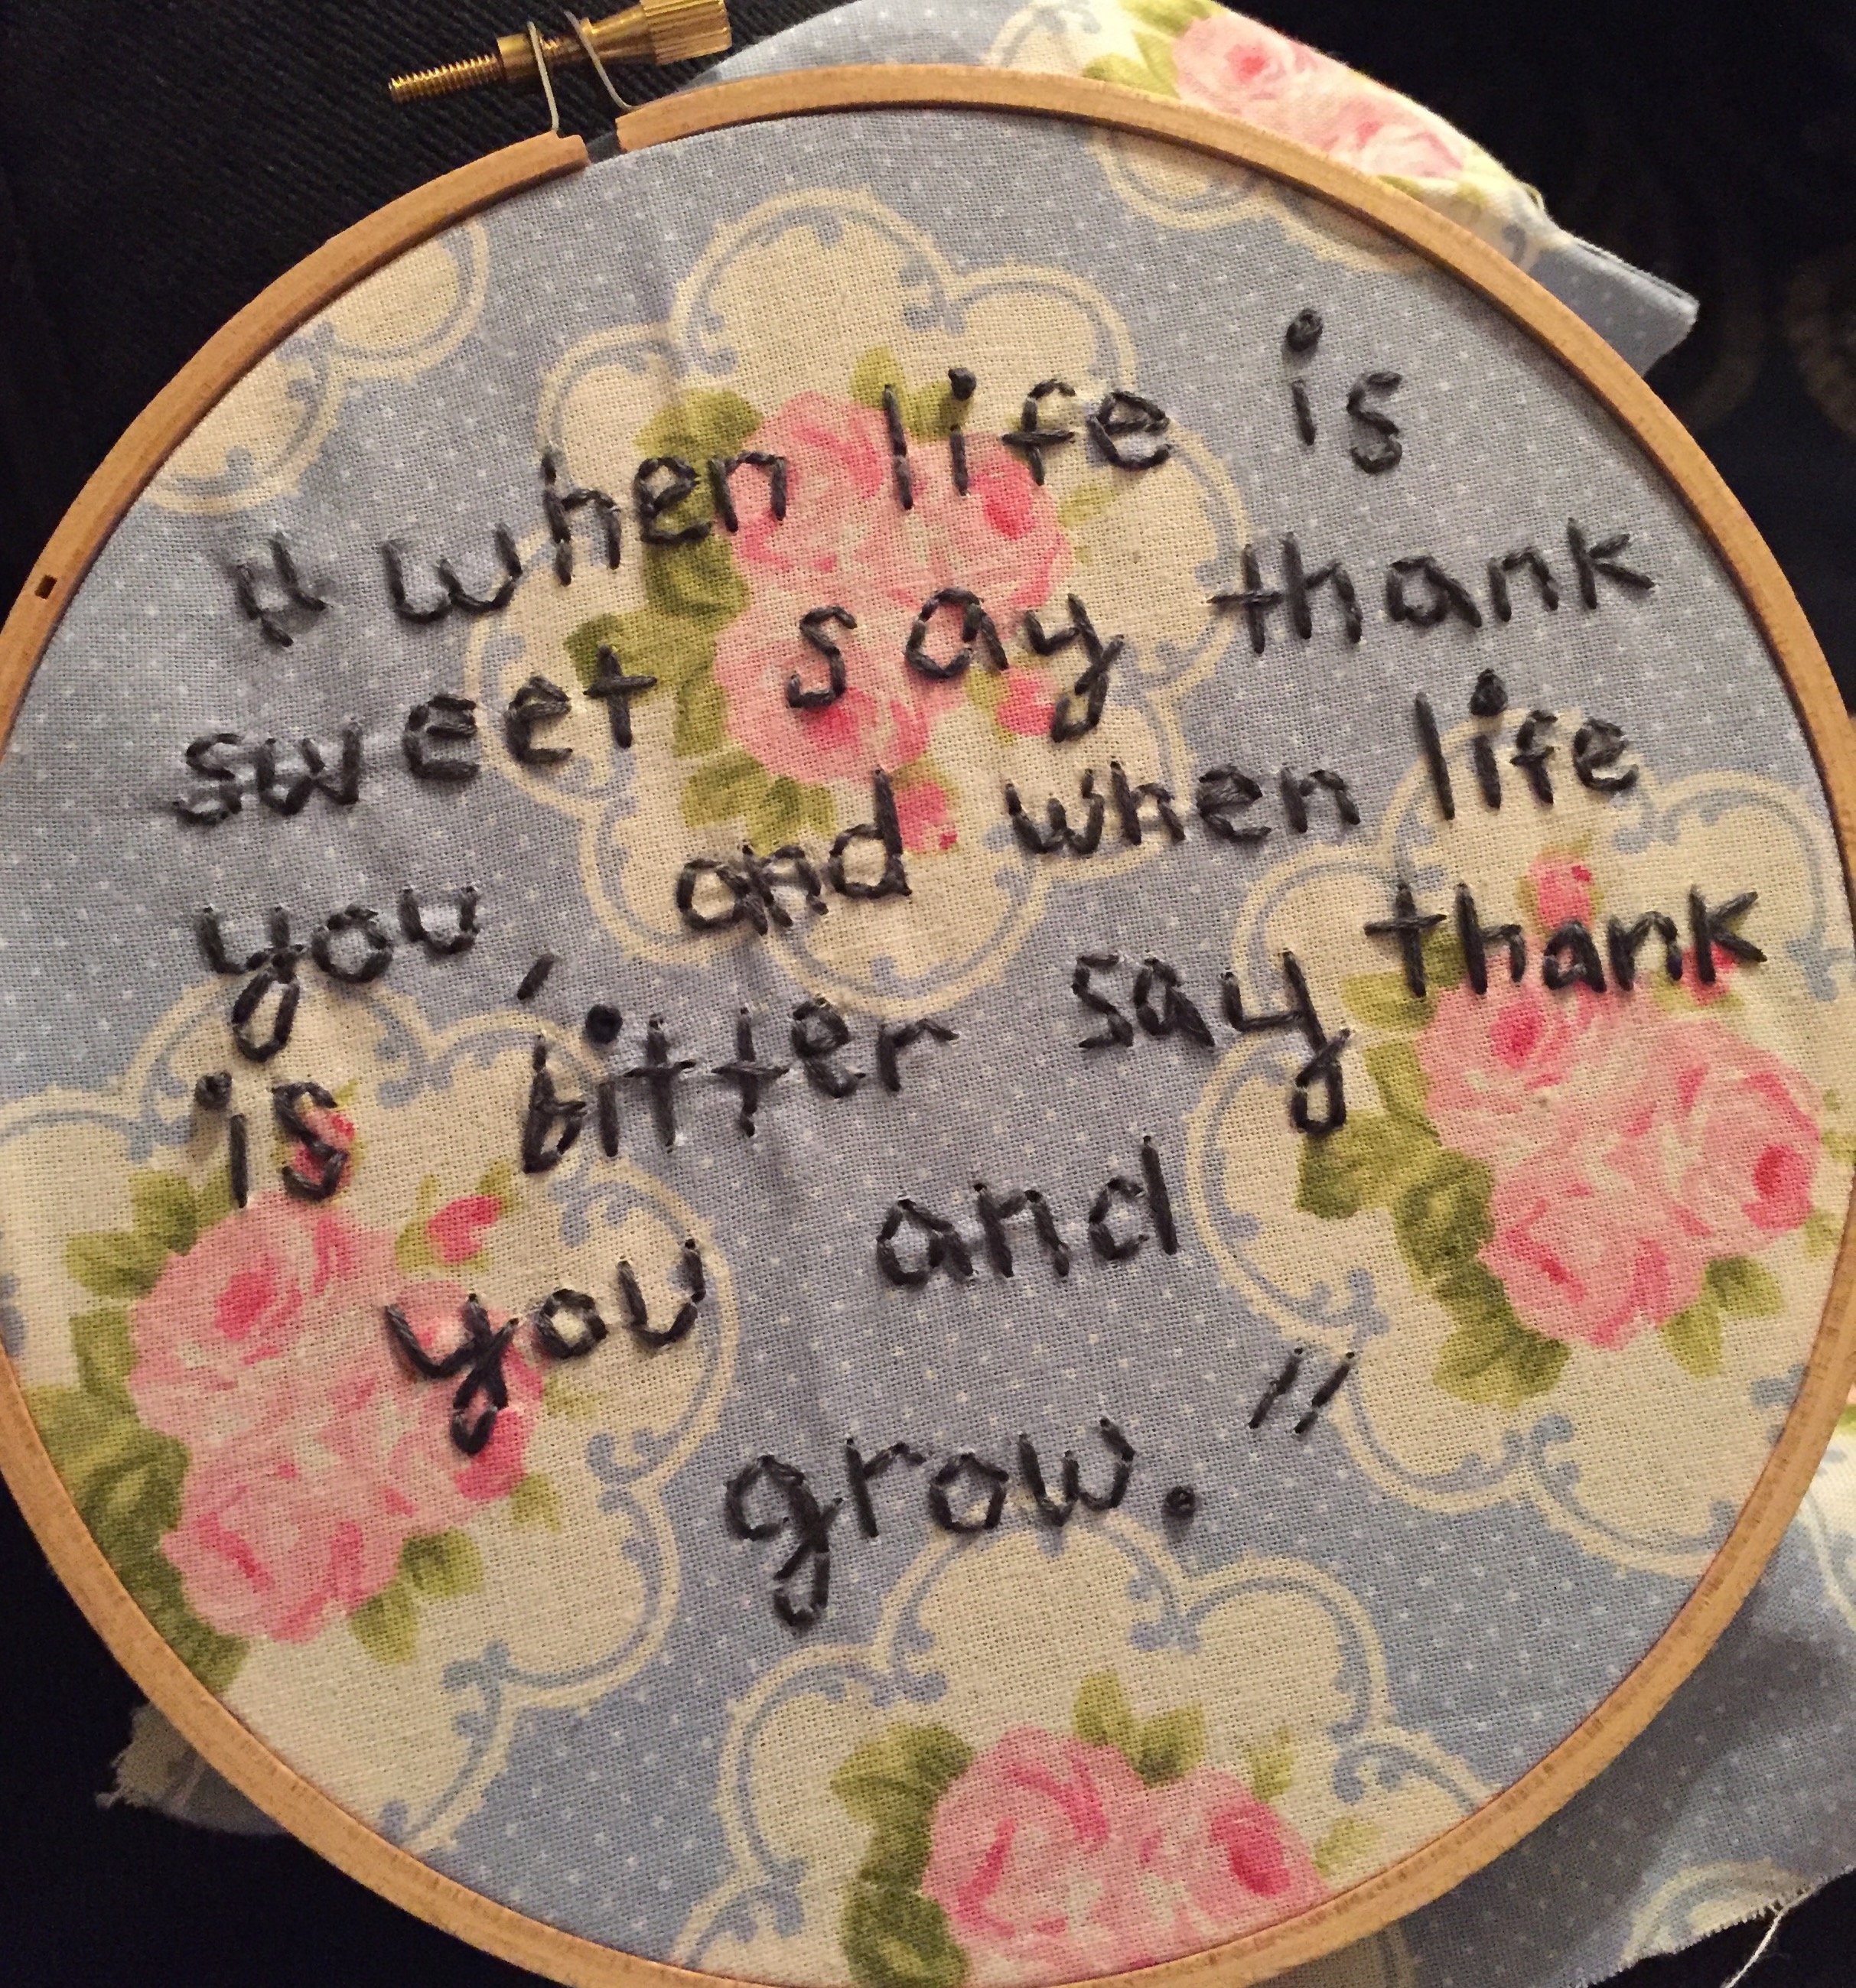 "when life is
sweet say thank
you, and when life
is bitter say thank
you and
grow."